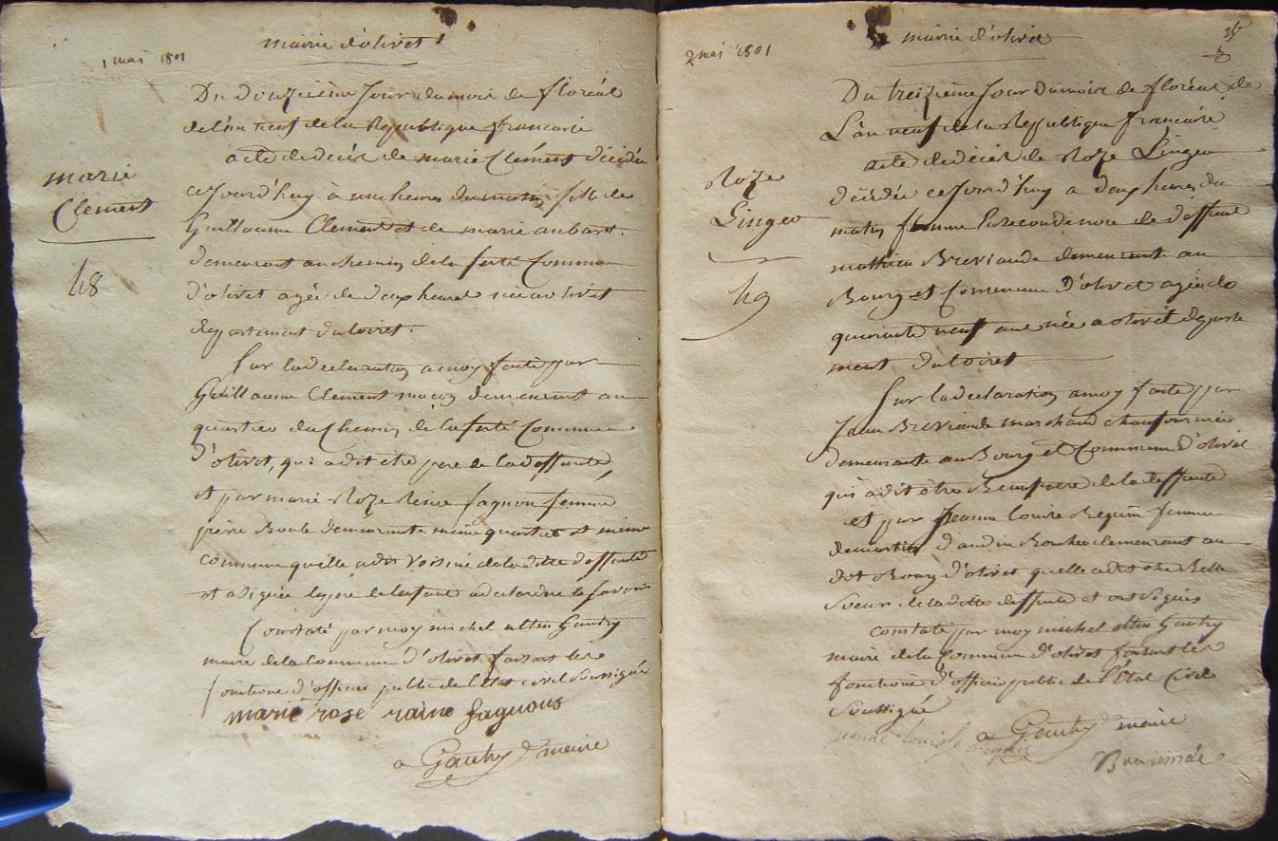 mairie d'olivet
1 mai 1801
Du Douzieme Jour du mois de floréal
de l'an neuf de la Republique francaise
acte de deces de marie Clement décédée
marie
Clement
48
ce Jourd'huy à une heure du matin fille de
Guillaume Clement et de marie aubart
demeurant au chemin de la ferté Commune
d'olivet agée de deux heures née a olivet
departement du loiret.
Sur la declaration a moy faite par
Guillaume Clement macon demeurant au
quartier du Chemin de la ferté Commune
d'olivet, qui a dit etre pere de la deffunte,
et par marie Roze Reine fagnou femme
pierre demeurante même quartier et même
commune quelle a dit Voisine de la ditte deffunte
et a signée le pere de la fante a declardne le savoir
Constaté par moy michel altin Gautry
maire de la Commune d'olivet faisant les
fonctions d'officier public de l'état civil Soussigné
marie rose raine fagnous
a Gautry maire
mairie d'olivet
2 mai 1801
Du treizieme Jour du mois de floréal de
L'an neuf de la Republique francaise
acte de deces de Roze Lingeo
Roze
Lingeo
49
décédée ce Jourd'huy a deux heures du
matin femme En seconde noce de deffunt
mathieu Breviande demeurante au
Bourg et Commune D'olivet agée de
quarante neuf ans née a olivet departe
ment du loiret
Sur la declaration a moy faite par
Breviande marchand chaufournier
demeurante au Bourg et Commune d'olivet
qui a dit être Beaufrere de la deffunte
et par Jeanne louise Requin femme
de martin daudin demeurant au
dit Bourg d'olivet quelle a dit etre Belle
Soeur de la ditte deffunte et ont signés
constaté par moy michel altin Gautry
maire de la Commune d'olivet faisant les
fonctions d'officier public de l'État Civil
Soussigné
a Gautry maire